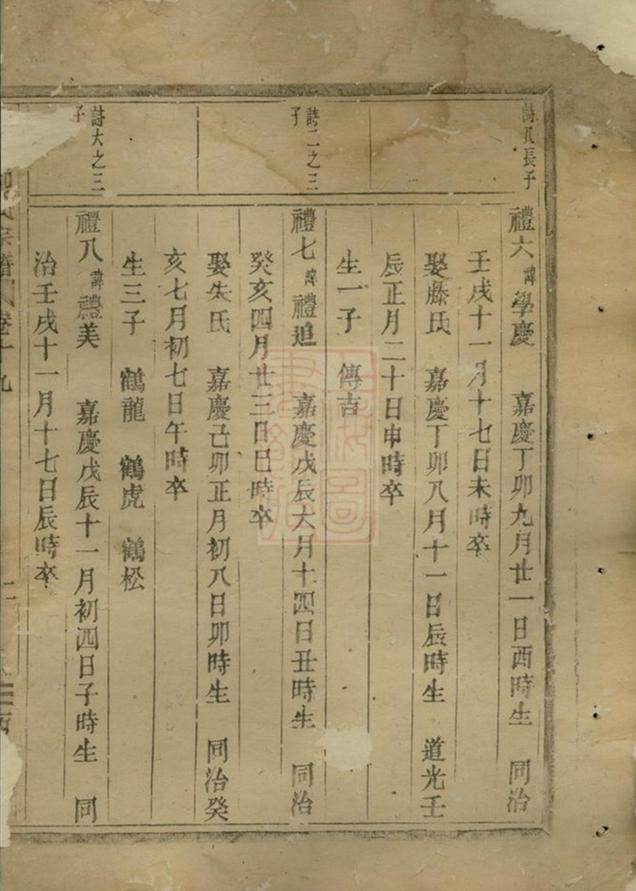 詩八長子
禮六 諱 學慶 嘉慶丁卯九月廿一日酉時生 同治
壬戌十一月十七日未時卒
娶滕氏 嘉慶丁卯八月十一日辰時生 道光壬
辰正月二十日申時卒
生一子 傳吉
詩二之三
子
禮七 諱 禮追 嘉慶戊辰六月十四日丑時生 同治
癸亥四月廿三日巳時卒
娶朱氏 嘉慶己卯正月初八日卯時生 同治癸
亥七月初七日午時卒
生三子 鶴龍 鶴虎 鶴松
詩大之三
子
禮八 諱 禮美 嘉慶戊辰十一月初四日子時生 同
治壬戌十一月十七日辰時卒
氏宗譜 卷十九